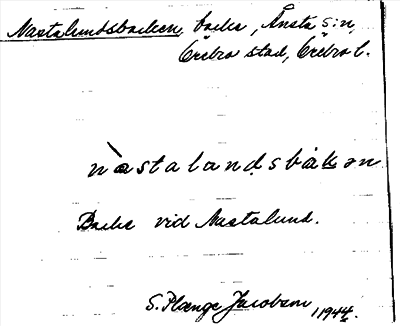 Nastalundsbacken, backe, Ånsta s:n,
Örebro stad, Örebro l.
nàstalandsbàkən
Backe vid Nastalund.
S. Plange Jacobson 1944.